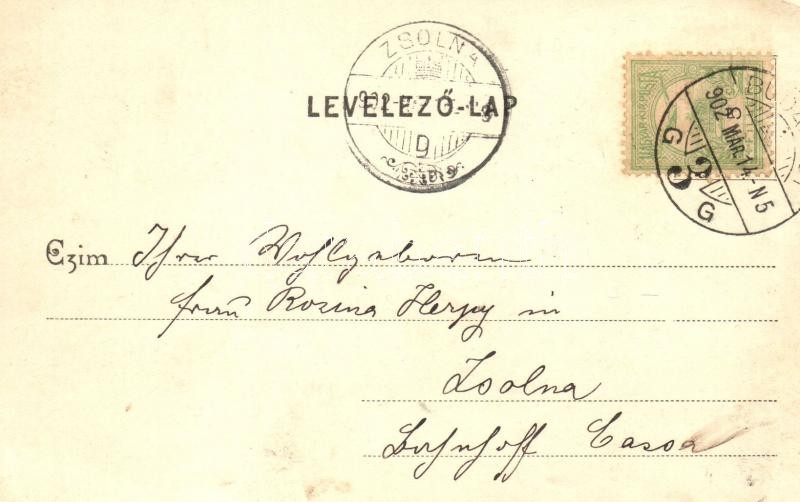 ZSOLNA
902
D
LEVELEZŐ-LAP
BUD
902 MÁR. 14.-N 5
G 3 G
Czim Ihrer Wohlgeboren
frau Rozina in
Zsolna
Bahnhoff Cassa